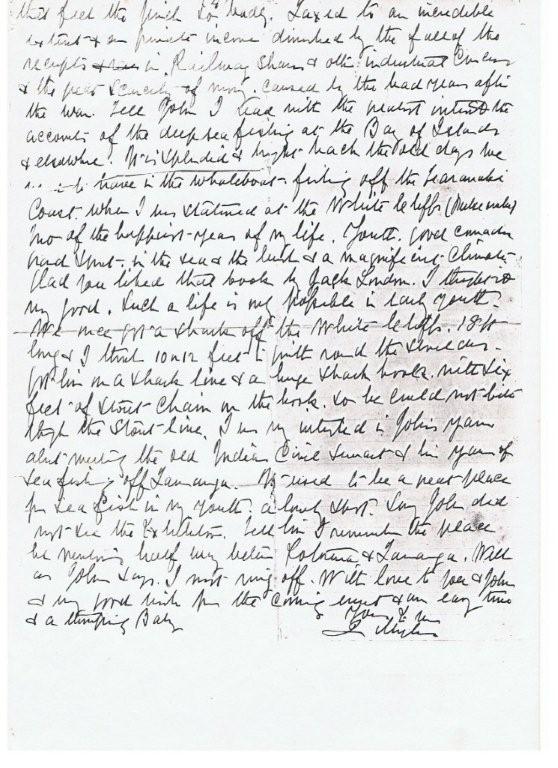 that feel the pinch so badly. Taxed to an incredible
extent & our private income diminished by the fall of the
receipts in Railway Shares & other industrial concerns
& the great scarcity of money caused by the bad years after
the war. Tell John I read with the greatest interest the
accounts of the deep sea fishing at the Bay of Islands
& elsewhere. It is splendid & brought back the old days we
to have in the whaleboat fishing off the Taranaki
Coast when I was stationed at the White Cliffs
two of the happiest years of my life. Youth, good comrades
good sport in the sea & the bush & a magnificent climate
Glad you liked that book by Jack London. I thought it
very good. Such a life is only possible in early youth.
We once got a shark off the White Cliffs. 18 ft
long & I think 10 or 12 feet in girth round the shoulders.
Got him on a shark line & a huge shark hook with six
feet of stout chain on the hook so he could not bite
through the stout line. I was very interested in John's yarn
about meeting the old Indian Civil Servant & his yarn of
sea fishing off Tauranga. It used to be a great place
for sea fish in my youth. Sorry John did
not see the Exhibition. Tell him I remember the place
he mentions half way between & Tauranga. Well
as John says, I must ring off. With love to you & John
& my good wishes for the coming event & an easy time
& a thumping Baby